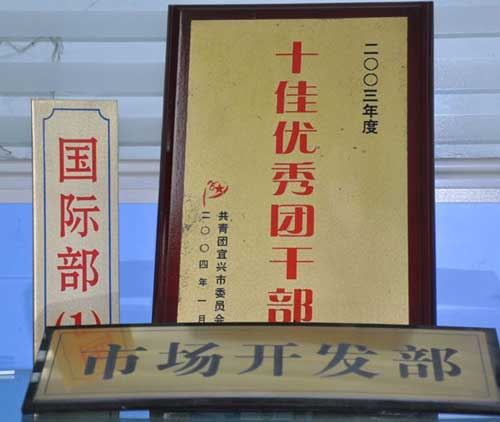 国际部(1)
二〇〇三年度
十佳优秀团干部
共青团宜兴市委员会
二〇〇四年一月
市场开发部